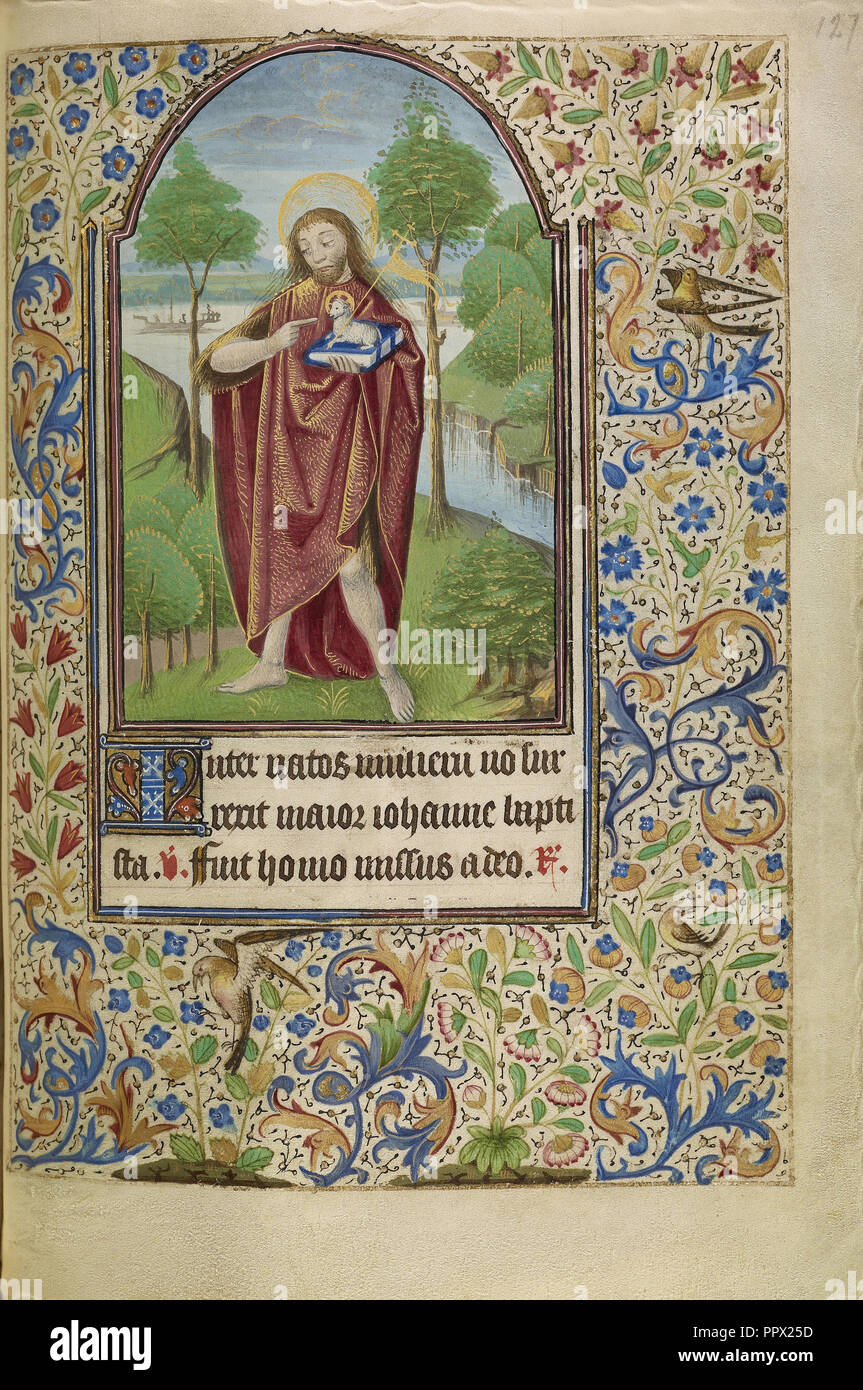 127
Inter natos mulieru no sur
rexit maior iohanne bapti
sta. V. ffuit homo missus a deo. R.
alamy
Image ID: PPX25D
www.alamy.com